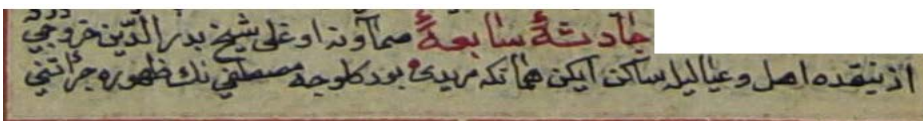 حادثهٔ سابعهٔ صماونه اوغلی شیخ بدر الدین خروجی
ازنیقده اهل و عیالیله ساکن ایکن همانکه مریدی بورکلوجه مصطفی نك ظهوره جرأتنی